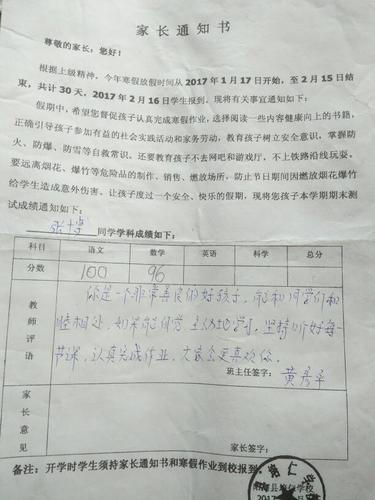 家长通知书
尊敬的家长：您好！
根据上级精神，今年寒假放假时间从 2017 年 1 月 17 日开始，至 2 月 15 日结
束，共计 30 天，2017 年 2 月 16 日学生报到。现将有关事宜通知如下：
假期中，希望您督促孩子认真完成寒假作业，选择阅读一些内容健康向上的书籍，
正确引导孩子参加有益的社会实践活动和家务劳动，教育孩子树立安全意识，掌握防
火、防爆、防雪等自救常识。还要教育孩子不去网吧和游戏厅，不上铁路沿线玩耍。
要远离烟花、爆竹等危险品的制作、销售、燃放场所，防止节日期间因燃放烟花爆竹
给学生造成意外伤害。让孩子度过一个安全、快乐的假期，现将您孩子本学期期末测
试成绩通知如下：
张 同学学科成绩如下：
科目 语文 数学 英语 科学 总分
分数 100 96
教师评语
你是一个非常善良的好孩子，能和同学们和
睦相处，如果能够 主动地学习，坚持听好每一
节课，认真完成作业，大家会更喜欢你。
班主任签字：黄秀平
家长意见
家长签字：
备注：开学时学生须持家长通知书和寒假作业到校报到
县培仁学校
2017